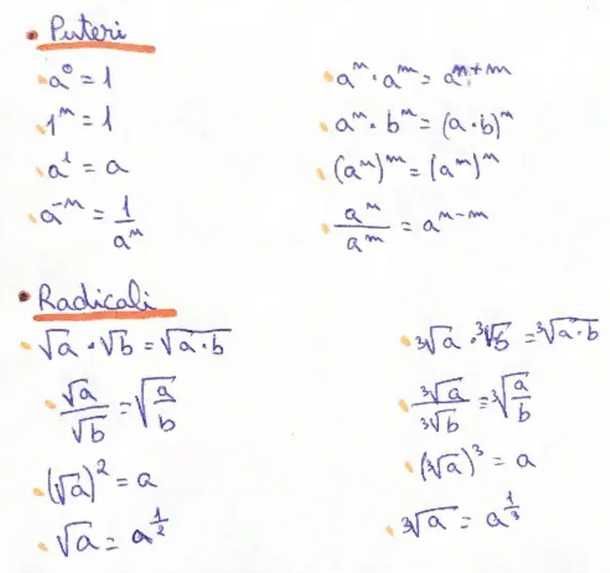 • Puteri
a⁰ = 1
1ⁿ = 1
a¹ = a
a⁻ⁿ = 1/aⁿ
aⁿ · aᵐ = aⁿ⁺ᵐ
aⁿ · bⁿ = (a · b)ⁿ
(aⁿ)ᵐ = (aᵐ)ⁿ
aⁿ/aᵐ = aⁿ⁻ᵐ
• Radicali
√a · √b = √(a · b)
√a/√b = √(a/b)
(√a)² = a
√a = a^(1/2)
³√a · ³√b = ³√(a · b)
³√a/³√b = ³√(a/b)
(³√a)³ = a
³√a = a^(1/3)